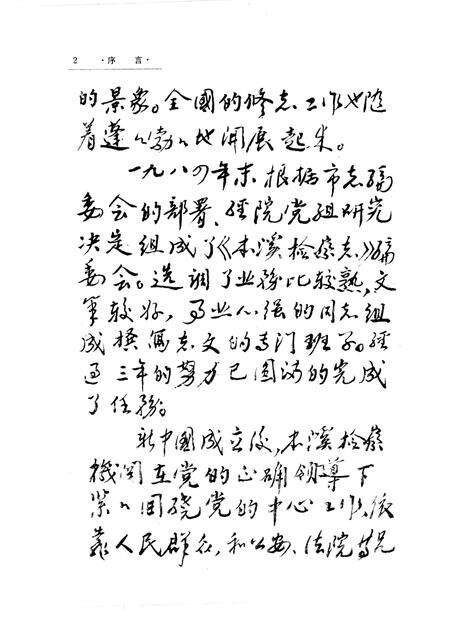 2 ·序 言·
的景象。全國的修志工作也随
着蓬〻勃〻地開展起来。
一九八四年末根据市志编
委会的部署、经院党组研究
决定组成了《本溪检察志》编
委会。选调了业务比较熟,文
笔较好,事业心强的同志组
成撰写志文的专门班子。经
过三年的努力已圆满的完成
了任务。
新中國成立後,本溪检察
機関在党的正确领导下
紧〻围绕党的中心工作,依
靠人民群众,和公安、法院等兄